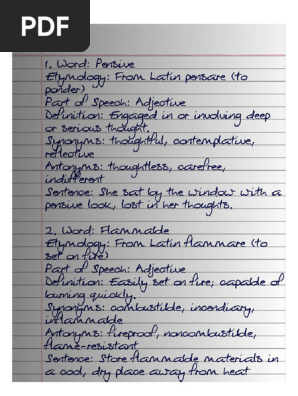 PDF
1, Word: Pensive
Etymology: From Latin pensare (to
ponder)
Part of Speech: Adjective
Definition: Engaged in or involving deep
or serious thought.
Synonyms: thoughtful, contemplative,
reflective
Antonyms: thoughtless, carefree,
indifferent
Sentence: She sat by the window with a
pensive look, lost in her thoughts.
2. Word: Flammable
Etymology: From Latin flammare (to
set on fire)
Part of Speech: Adjective
Definition: Easily set on fire; capable of
burning quickly.
Synonyms: combustible, incendiary,
inflammable
Antonyms: fireproof, noncombustible,
flame-resistant
Sentence: Store flammable materials in
a cool, dry place away from heat